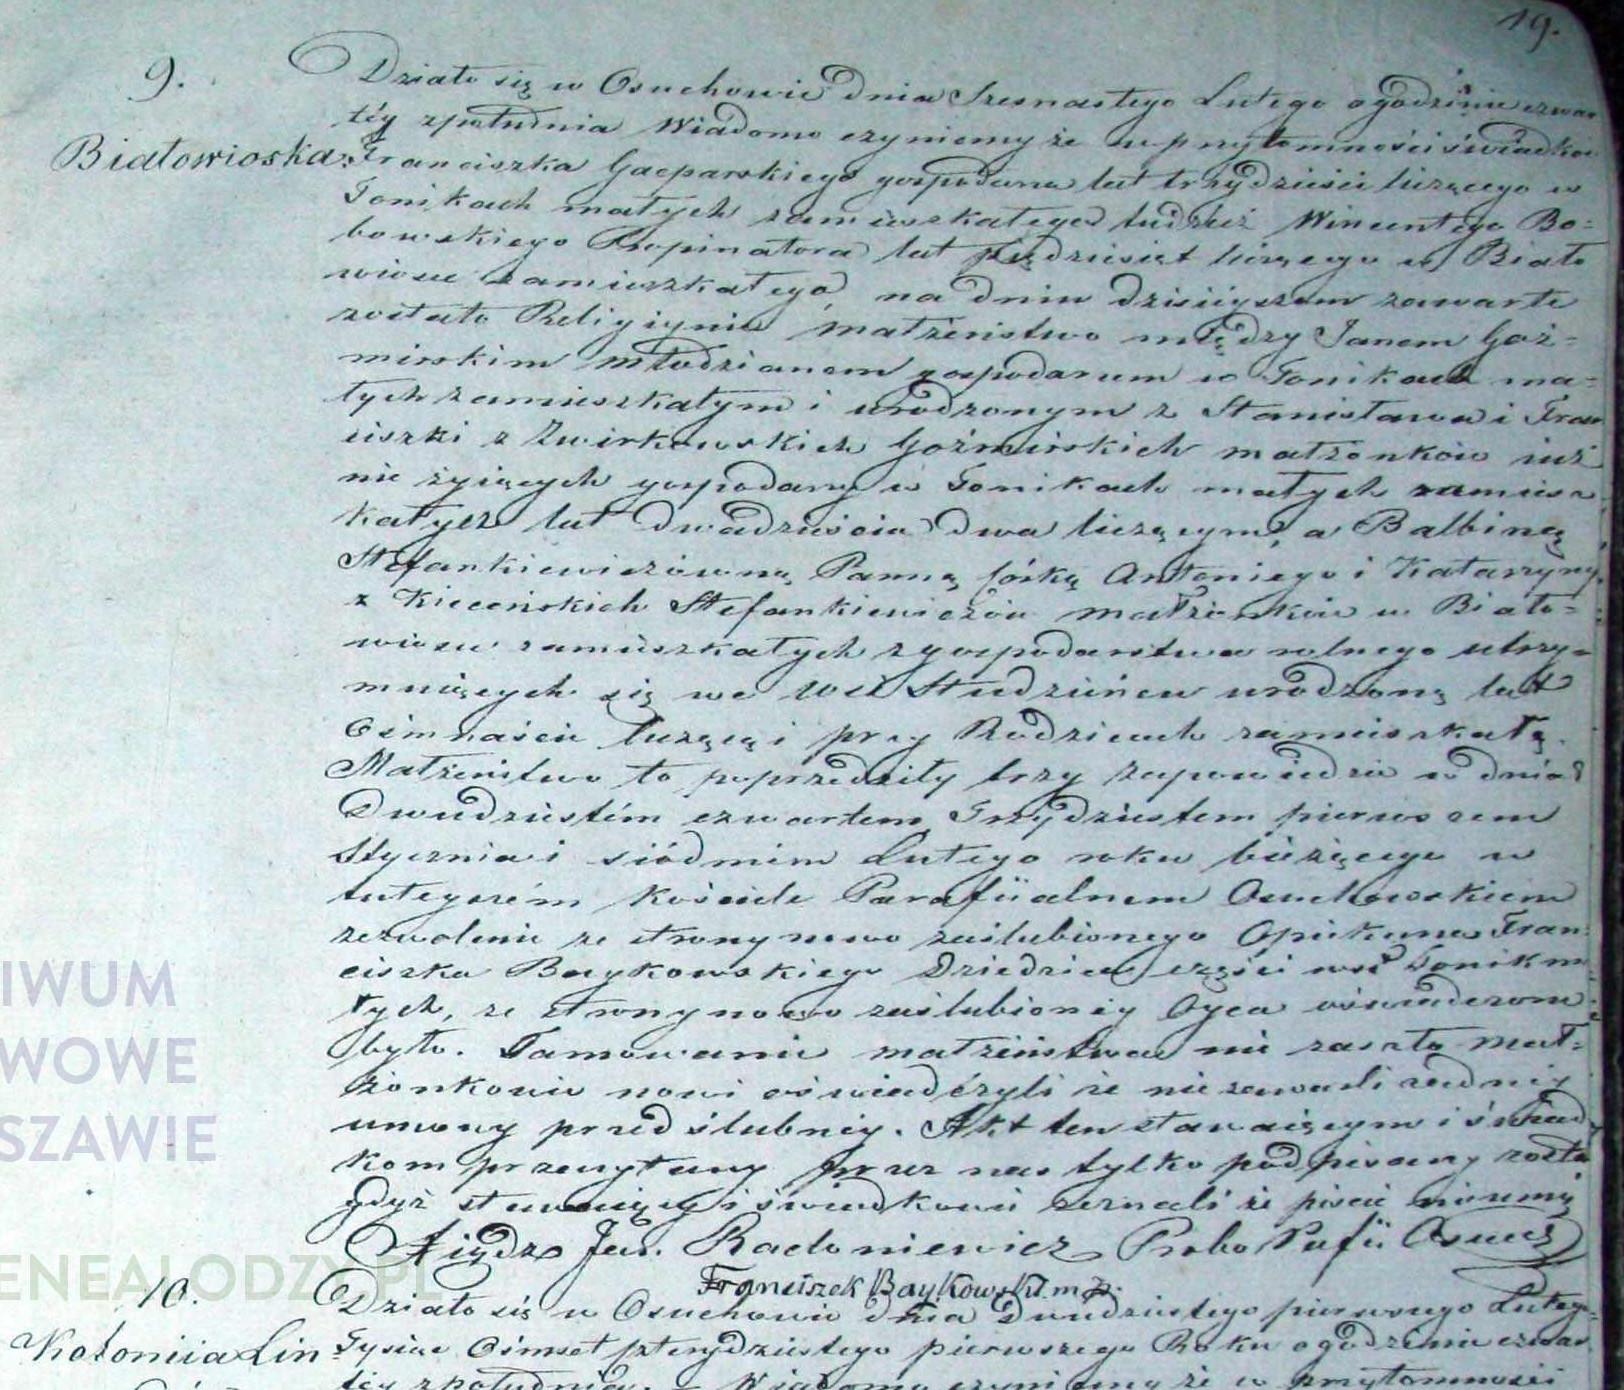 19.
9.
Białowioska.
Działo się w Osuchowie dnia Szesnastego Lutego o godzinie czwar
téy zpołudnia Wiadomo czyniemy że w przytomności świadków
Franciszka Gasparskiego gospodarza lat trzydzieści liczącego w
Tonikach małych zamieszkałego tudzież Wincentego Bo-
bowskiego Propinatora lat piędziesiąt liczącego w Biało
wiosce zamieszkałego, na dniu dzisieyszem zawarte
zostało Religiynie małżeństwo między Janem Goź-
mirskim młodzianem gospodarzem w Tonikach ma-
łych zamieszkałym i urodzonym z Stanisława i Fran
ciszki z Żwirkowskich Goźmirskich małżonków już
nie żyiących gospodarzy w Tonikach małych zamiesz
kałych lat dwadzieścia dwa liczącym, a Balbiną
Stefankiewiczówną Panną córką Antoniego i Katarzyny
z Stefankiewiczów małżonków w Biało-
wiosce zamieszkałych z gospodarstwa rolnego utrzy-
muiących się we wsi Studzieńcu urodzoną lat
Ośmnaście liczącą i przy Rodzicach zamieszkałą.
Małżeństwo to poprzedziły trzy zapowiedzie w dniach
Dwudziestém czwartem Trzydziestem pierwszem
Stycznia i siódmim Lutego roku bieżącego w
tuteyszém kościele Parafiialnem Osuchowskiem
zezwolenie ze strony nowo zaślubionego Opiekuna Fran
ciszka Baykowskiego Dziedzica części wsi Tonik ma
łych, ze strony nowo zaślubionéy Oyca oświadczone
było. Tamowanie małżeństwa nie zaszło Mał-
żonkowie nowi oświadczyli że nie zawarli żadnéy
umowy przedślubnéy. Akt ten stawaiącym i świad
kom przeczytany przez nas tylko podpisany został
gdyż stawaiący i świadkowie zeznali że pisać nieumią
Xiądz Jan Radoniewicz Probo Pafii Osuch
Franciszek Baykowski mp.
10.
Koloniia Lin
Działo się w Osuchowie dnia Dwudziestego pierwszego Lutego
Tysiąc Ośmset czterydziestego pierwszego Roku o godzinie czwar
téy zpołudnia. Wiadomo czyniemy że w przytomności
IWUM
WOWE
SZAWIE
ENEALODZY.PL